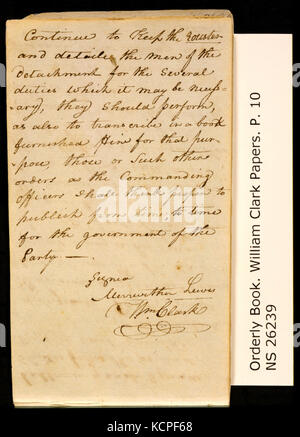 Continue to Keep the Rouster
and detaile the men of the
detachment for the Several
duties which it may be necess-
ary, they Should perform,
as also to transcribe in a book
furnished Him for that pur-
pose, those or Such other
orders as the Commanding
Officers Shall think proper to
publish from time, to time
for the government of the
Party.—
Signed
Meriwether Lewis
Wm Clark
Orderly Book. William Clark Papers. P. 10
NS 26239
alamy
Image ID: KCPF68
www.alamy.com